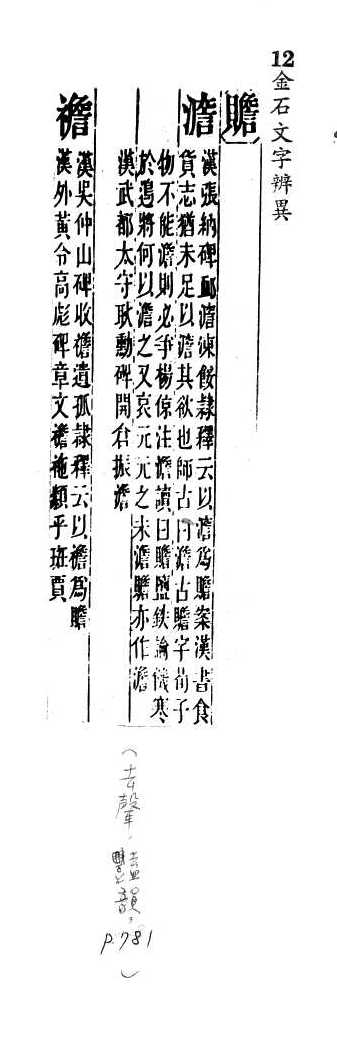 12金石文字辨異
贍
澹
漢張納碑卹澹凍餒隸釋云以澹爲贍案漢書食
貨志猶未足以澹其欲也師古曰澹古贍字荀子
物不能澹則必爭楊倞注澹讀曰贍鹽鉄論饑寒
於邊將何以澹之又哀元元之未澹贍亦作澹
漢武都太守耿勳碑開倉振澹
襜
漢吳仲山碑收襜遺孤隸釋云以襜爲贍
漢外黃令高彪碑章文襜拖類乎班賈
(去聲,豔韻,P.781)